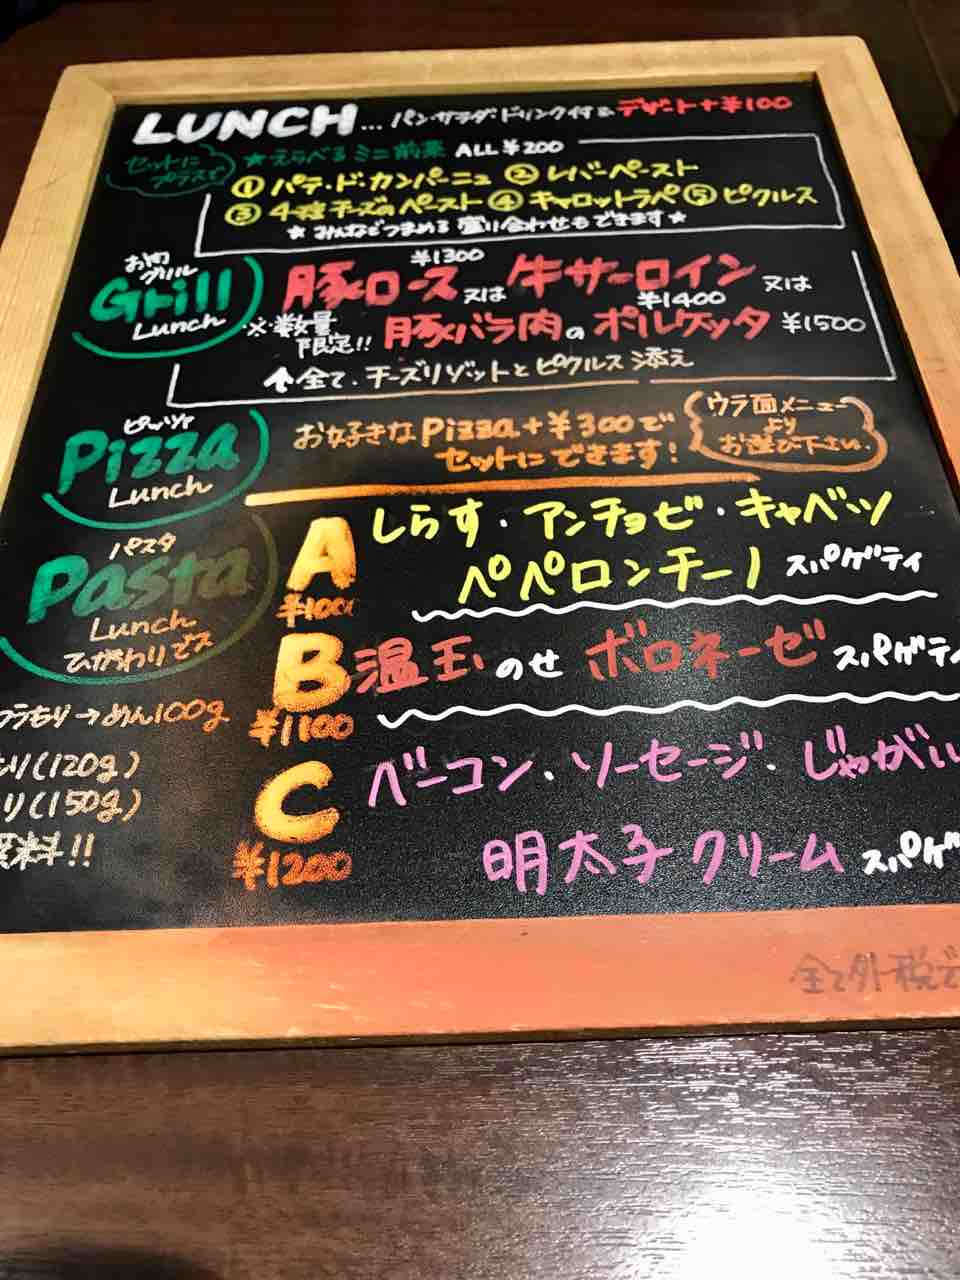 LUNCH... パン・サラダ・ドリンク付き デザート+¥100
セットにプラスで ★えらべるミニ前菜 ALL ¥200
① パテ・ド・カンパーニュ ② レバーペースト
③ 4種チーズのペースト ④ キャロットラペ ⑤ ピクルス
★ みんなでつまめる 盛り合わせもできます ★
お肉グリル
Grill
Lunch
豚ロース ¥1300 又は 牛サーロイン ¥1400 又は
※数量限定!! 豚バラ肉のポルケッタ ¥1500
↑全て、チーズリゾットとピクルス 添え
ピッツァ
Pizza
Lunch
お好きなPizza+¥300で
セットにできます!
ウラ面メニュー
より
お選び下さい.
パスタ
Pasta
Lunch
ひがわりでス
A ¥1000 しらす・アンチョビ・キャベツ
ペペロンチーノ スパゲティ
B ¥1100 温玉のせ ボロネーゼ スパゲティ
C ¥1200 ベーコン・ソーセージ・じゃがい
明太子クリーム スパゲ
→めん100g
(120g)
(150g)
料!!
全て外税で